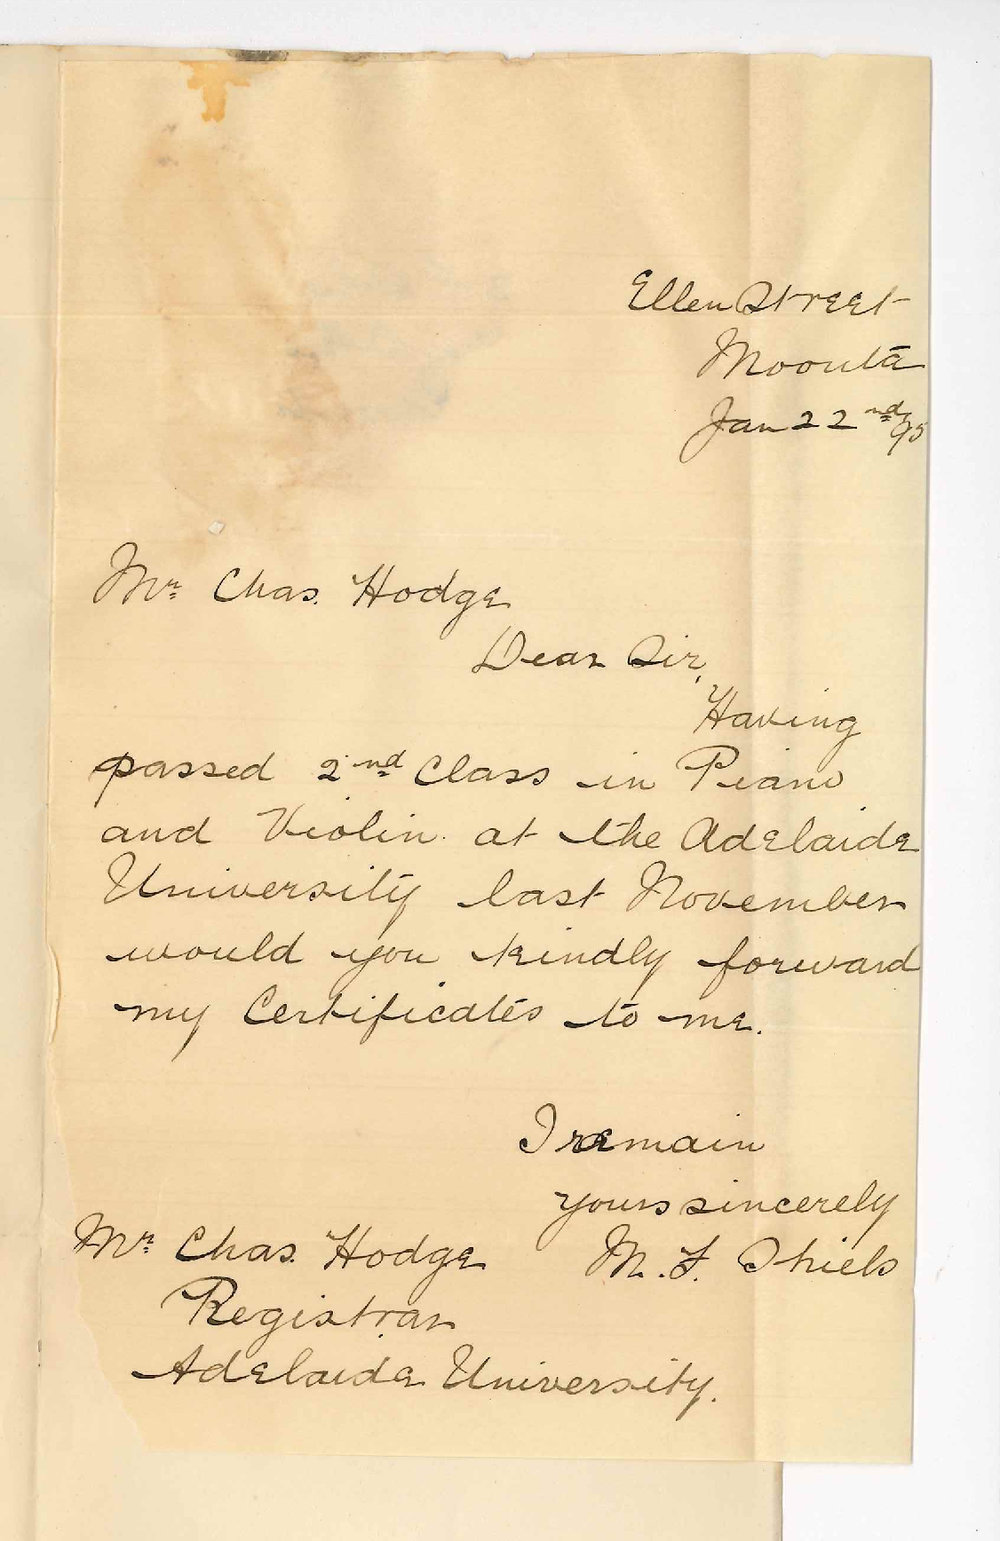 Ellen Street
Moonta
Jan 22nd/95
Mr. Chas. Hodge
Dear Sir,
Having
passed 2nd Class in Piano
and Violin at the Adelaide
University last November
would you kindly forward
my Certificates to me.
I remain
yours sincerely
M. F. Shiels
Mr. Chas. Hodge
Registrar
Adelaide University.